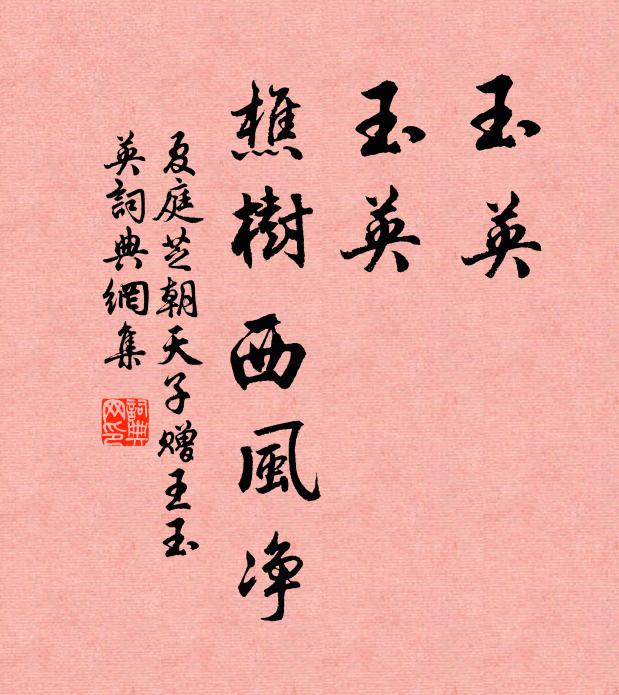 玉英
玉英
樵樹西風淨
夏庭芝朝天子贈王玉
英詞典網集
詞典
网印